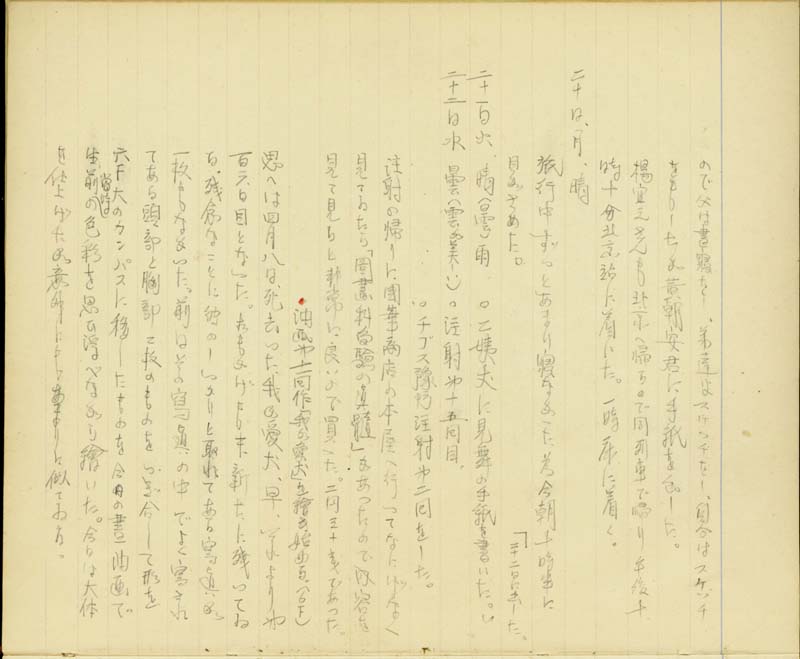 ので父は書寝なし、弟達はスケッチをし、自分はスケッチ
をもした。黄朝安君に手紙を出した。
楊宜之兄も北京へ帰るので同列車で帰り午後十
時十分北京站に着いた。一時床に着く。
二十日、月、晴
旅行中ずっとあまり寝なかった為今朝十時半に
目がさめた。
二十一日火、晴(曇)雨 ○乙姨丈に見舞の手紙を書いた。
「二十二日に出した。
二十二日水 曇 ○注射第十五回目。
○チブス豫防注射第二回をした。
注射の帰りに国華商店の本屋へ行ってなにげなく
見てゐたら「図画科受験の真髄」があったので内容を
見て見ると非常に良いので買った。二円三十銭であった。
油画第十一回作「我が愛犬」を繪き始める
思へば四月八日、死去った我が愛犬、早いそれよりや
百六日目となった。たもかげも未だ新たに残ってゐ
る。残念なことに彼のしっかりと取れてある寫真が
一枚もなかった。前日その寫真の中でよく寫され
てある頭部と胸部二枚のものをつぎ合して形を
六F大のカンバスに移したものを今日の晝油画で
生前当時の色彩を思ひ浮べながら繪いた。今日は大体
を仕上げたが意外によくあまりに似てゐる。